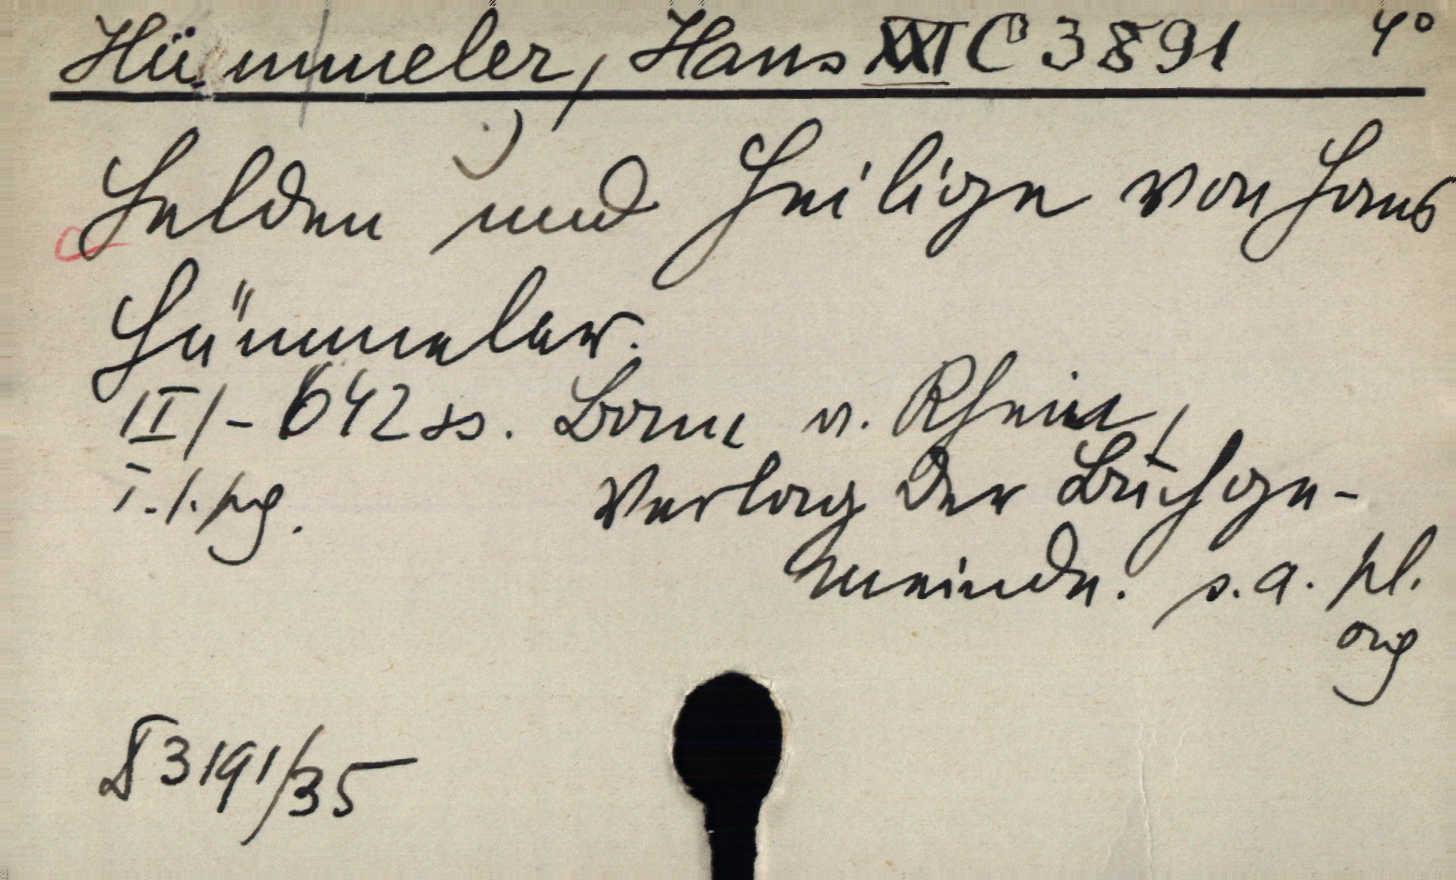 Hümmeler, Hans XXI C 3891 4°
Helden und Heilige von Hans
Hümmeler.
/II/- 642 ss. Bonn a. Rhein,
1.1.pg. Verlag der Buchge-
meinde. s.a. pl.
org
I 3191/35